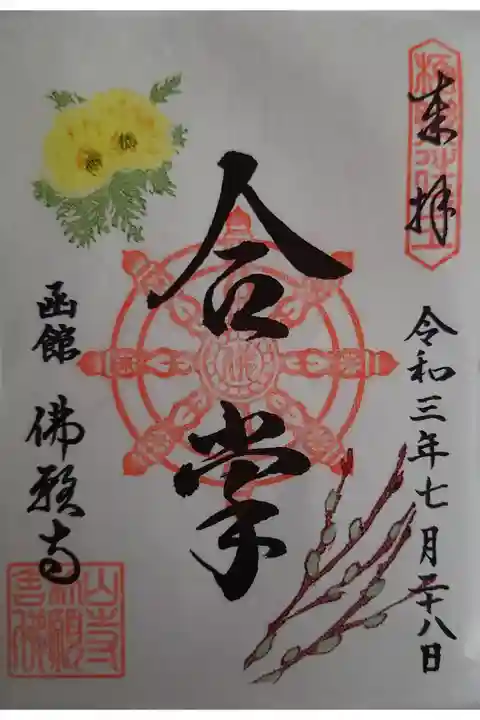 来拝
令和三年七月二十八日
合掌
函館 佛願寺